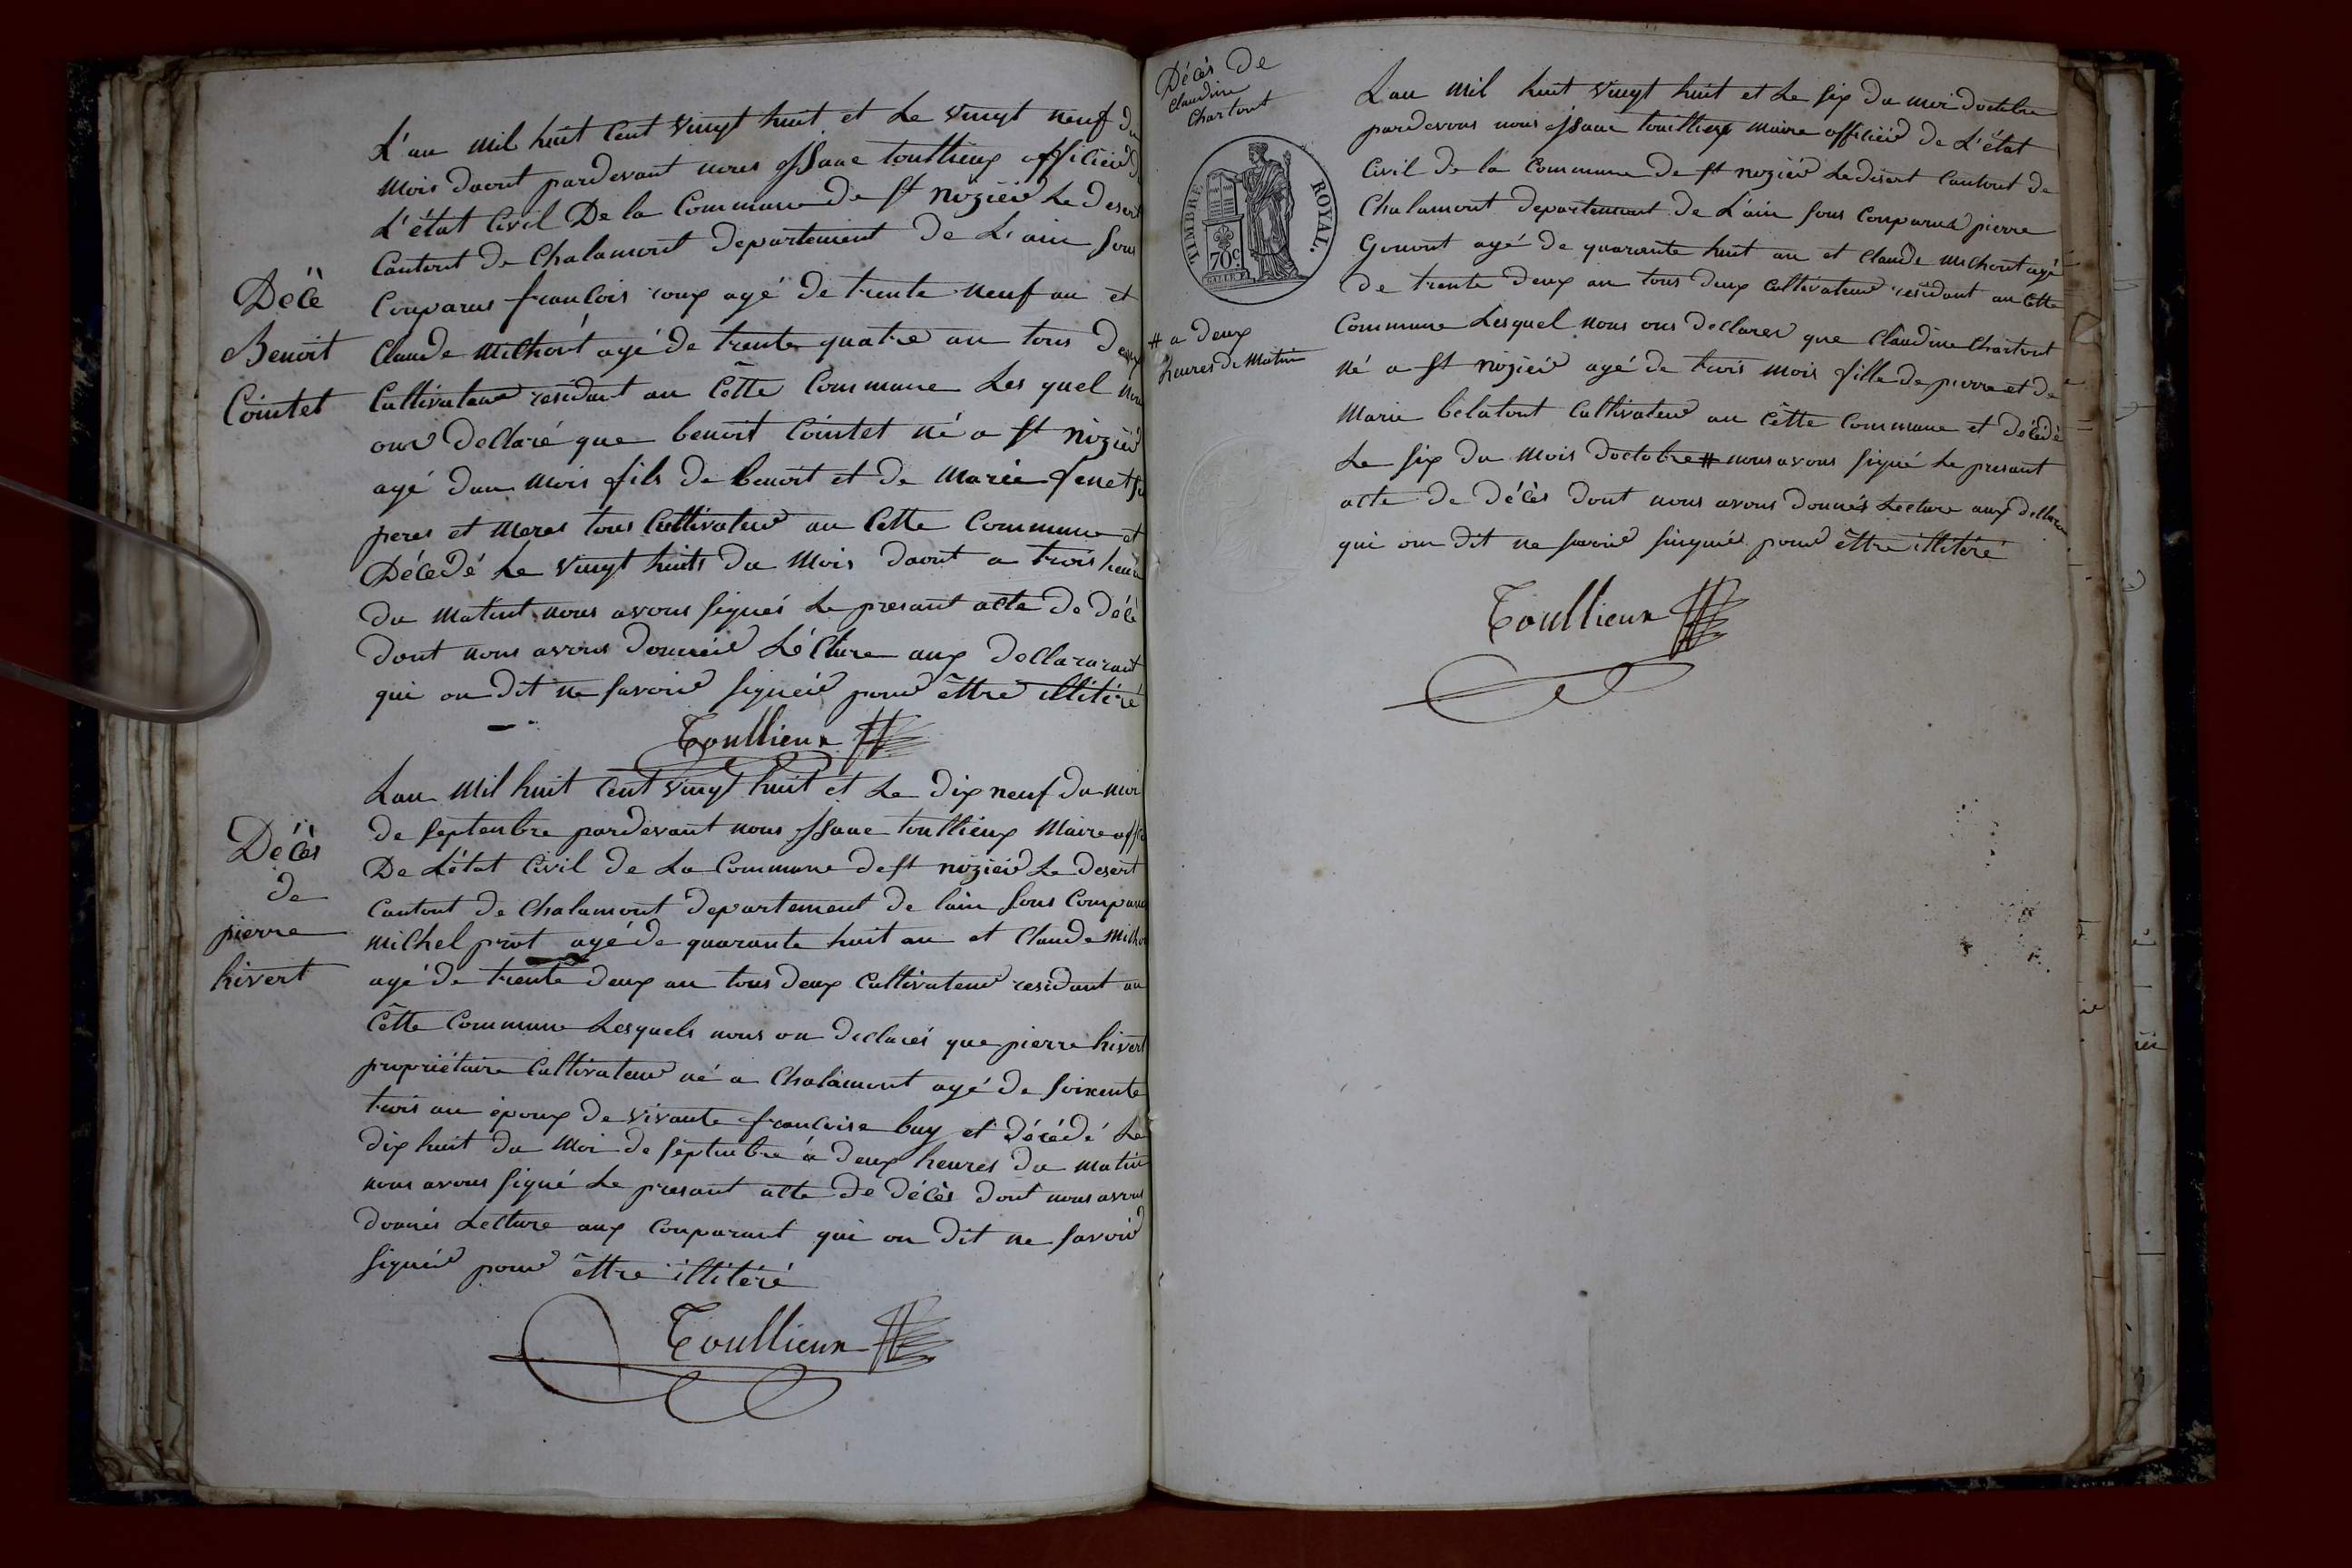 L'an mil huit Cent vingt huit et Le vingt neuf du
Mois daout pardevant nous issaac toullieux officiéé de
L'état Civil De la Commune de St nizièé Le desert
Cantont de Chalamont departement de L'ain sons
Décè
Conparus francois roux agé de trente neuf an et
Benoit
Claude Michont agé de trente quatre an tous deux
Cointet
Cultivateur residant an Cètte Commune Les quel nou
ons declaré que benoit Cointet né a St nizièé
agé dun mois fils de benoit et de Marie
peres et Meres tous Cultivateur an Cette Commune et
Décédé Le vingt huits du Mois daout a trois heure
du matint nous avons signés Le presant acte de décè
dont nous avons donneié Lécture aux declararant
qui on dit ne savoir signéé pour èttre illitéré
Toullieux
Lan Mil huit Cent vingt huit et Le dix neuf du moi
de septenbre pardevant nous issaac toullieux Maire offi
Décès
De L'état Civil de La Commune de St nizièé Le desert
de
Cantont de Chalamont departement de lain sons Conparus
pierre
Michel prot agé de quarante huit an et Claude Micho
hivert
agé de trente deux an tous deux Cultivateur residant an
Cètte Commune Lesquels nous on declarés que pierre hivert
propriétaire Cultivateur né a Chalamont agé de soixente
trois an époux de vivante francoise buy et décédé Le
dix huit du Moi de septenbre a deux heures du matin
nous avons signé Le presant acte de décès dont nous avons
donnés Lecture aux Conparant qui on dit ne savoir
signéé pour èttre illitéré
Toullieux
Décès de
Claudine
Chartont
TIMBRE ROYAL.
70c.
Lan Mil huit vingt huit et Le six du moi doctobre
pardevous nous issaac toullieux Maire officiéé de L'état
Civil de la Commune de St nizièé Le desert Cantont de
Chalamont departement de L'ain sons Conparus pierre
Gonont agé de quarante huit an et Claude Michont agé
de trente deux an tous deux Cultivateur residant an Cètte
# a deux
heures de Matin
Commune Lesquel nous ons declarer que Claudine Chartont
né a St nizièé agé de trois mois fille de pierre et de
Marie bélatont Cultivateur an Cètte Commune et décédé
Le six du Mois doctobre # nous avons signé Le presant
acte de décès dont nous avons donnés Lecture aux declaran
qui on dit ne savoir singnié pour èttre illitéré
Toullieux